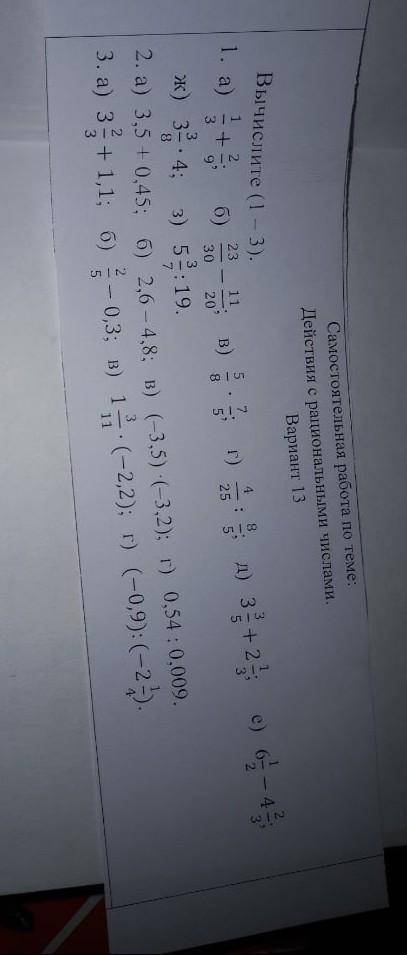 Самостоятельная работа по теме:
Действия с рациональными числами.
Вариант 13
Вычислите (1 – 3).
1. а) 1/3 + 2/9; б) 23/30 − 11/20; в) 5/8 · 7/5; г) 4/25 : 8/5; д) 3 3/5 + 2 1/3; е) 6 1/2 − 4 2/3;
ж) 3 3/8 · 4; з) 5 3/7 : 19.
2. а) 3,5 + 0,45; б) 2,6 – 4,8; в) (–3,5)·(–3,2); г) 0,54 : 0,009.
3. а) 3 2/3 + 1,1; б) 2/5 − 0,3; в) 1 3/11 · (−2,2); г) (−0,9):(−2 1/4).